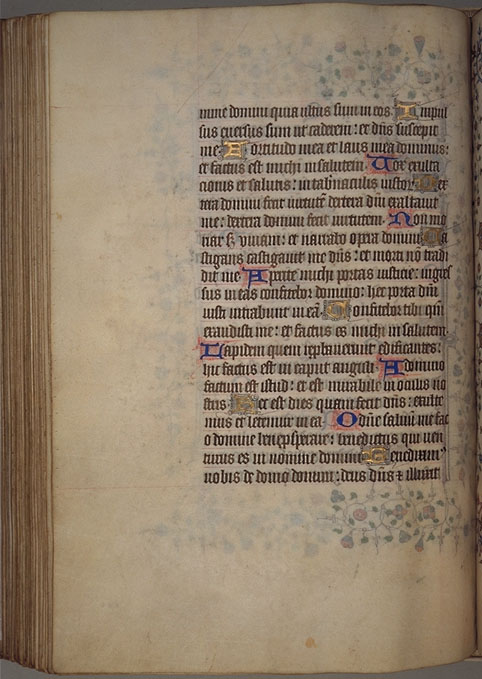 mine domini quia ultus sum in eos. Impul
sus eversus sum ut caderem: et dn̄s suscepit
me. Fortitudo mea et laus mea dominus:
et factus est michi in salutem. Vox exulta
cionis et salutis: in tab̄naculis iustor̄. Dex
tera domini fecit virtutē dextera dn̄i exaltavit
me: dextera domini fecit virtutem. Non mo
riar s; vivam: et narrabo opera domini. Ca
stigans castigavit me dn̄s: et morti nō tradi
dit me. Aperite michi portas iusticie: ingres
sus in eas confitebor domino: hec porta dn̄i
iusti intrabunt in eā. Confitebor tibi qm̄
exaudisti me: et factus es michi in salutem.
Lapidem quem reprobaverunt edificantes:
hic factus est in caput anguli. A domino
factum est istud: et est mirabile in oculis no
stris. Hec est dies quam fecit dn̄s: exulte
mus et letemur in ea. O dn̄e salvū me fac
o domine bene prosperare: benedictus qui ven
turus es in nomine domini. Benedixim
nobis de domo domini: deus dn̄s ⁊ illuxit